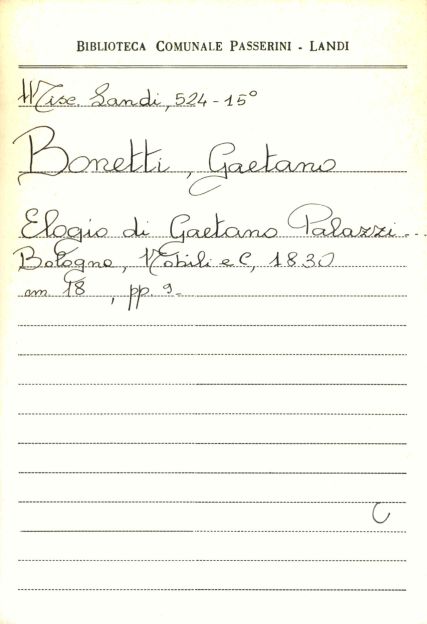 BIBLIOTECA COMUNALE PASSERINI - LANDI
Misc. Landi, 524-15°
Bonetti, Gaetano
Elogio di Gaetano Palazzi...
Bologna, Nobili e C, 1830
cm 18, pp. 9-
C